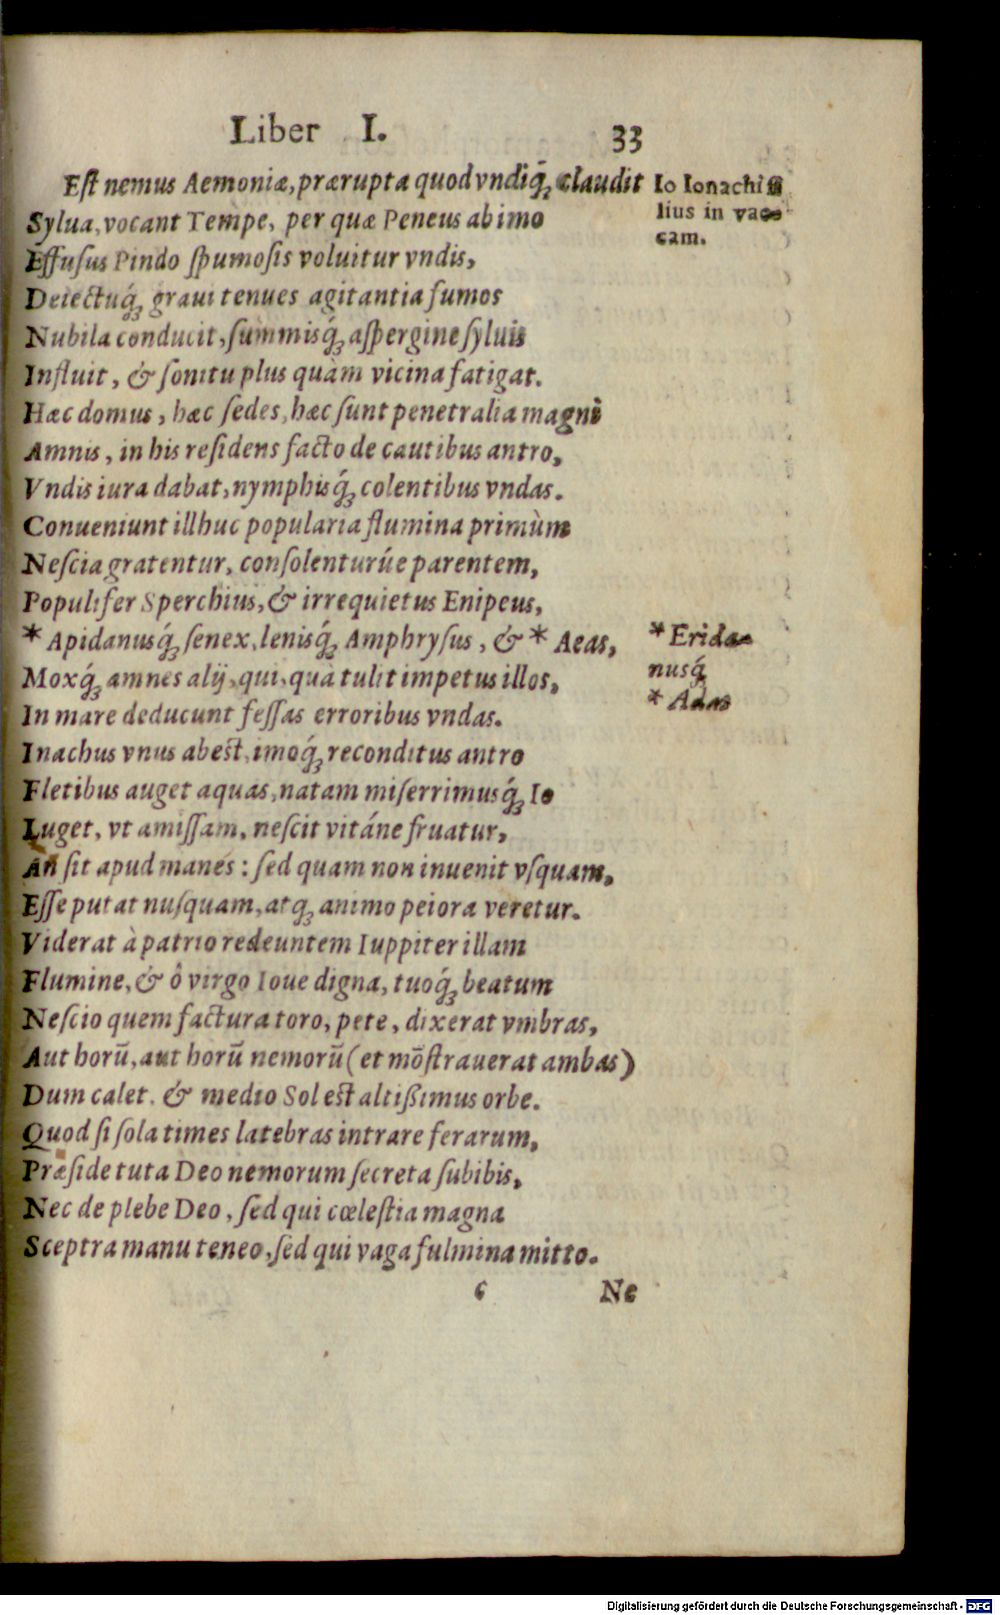 Liber I. 33
Est nemus Aemoniæ, prærupta quod vndiq́; claudit
Io Ionachi fi
lius in vac-
cam.
Sylua, vocant Tempe, per quæ Peneus ab imo
Effusus Pindo spumosis voluitur vndis,
Deiectuq́; graui tenues agitantia fumos
Nubila conducit, summisq́; aspergine syluis
Influit, & sonitu plus quàm vicina fatigat.
Hæc domus, hæc sedes, hæc sunt penetralia magni
Amnis, in his residens facto de cautibus antro,
Vndis iura dabat, nymphisq́; colentibus vndas.
Conueniunt illhuc popularia flumina primùm
Nescia gratentur, consolenturúe parentem,
Populifer Sperchius, & irrequietus Enipeus,
* Apidanusq́; senex, lenisq́; Amphrysus, & * Aeas,
* Erida-
nusq́;
* Adas
Moxq́; amnes alij, qui, quà tulit impetus illos,
In mare deducunt fessas erroribus vndas.
Inachus vnus abest, imoq́; reconditus antro
Fletibus auget aquas, natam miserrimusq́; Io
Luget, vt amissam, nescit vitáne fruatur,
An sit apud manes: sed quam non inuenit vsquam,
Esse putat nusquam, atq; animo peiora veretur.
Viderat à patrio redeuntem Iuppiter illam
Flumine, & ô virgo Ioue digna, tuoq́; beatum
Nescio quem factura toro, pete, dixerat vmbras,
Aut horū, aut horū nemorū (et mōstrauerat ambas)
Dum calet, & medio Sol est altißimus orbe.
Quod si sola times latebras intrare ferarum,
Præside tuta Deo nemorum secreta subibis,
Nec de plebe Deo, sed qui cœlestia magna
Sceptra manu teneo, sed qui vaga fulmina mitto.
c Ne
Digitalisierung gefördert durch die Deutsche Forschungsgemeinschaft - DFG